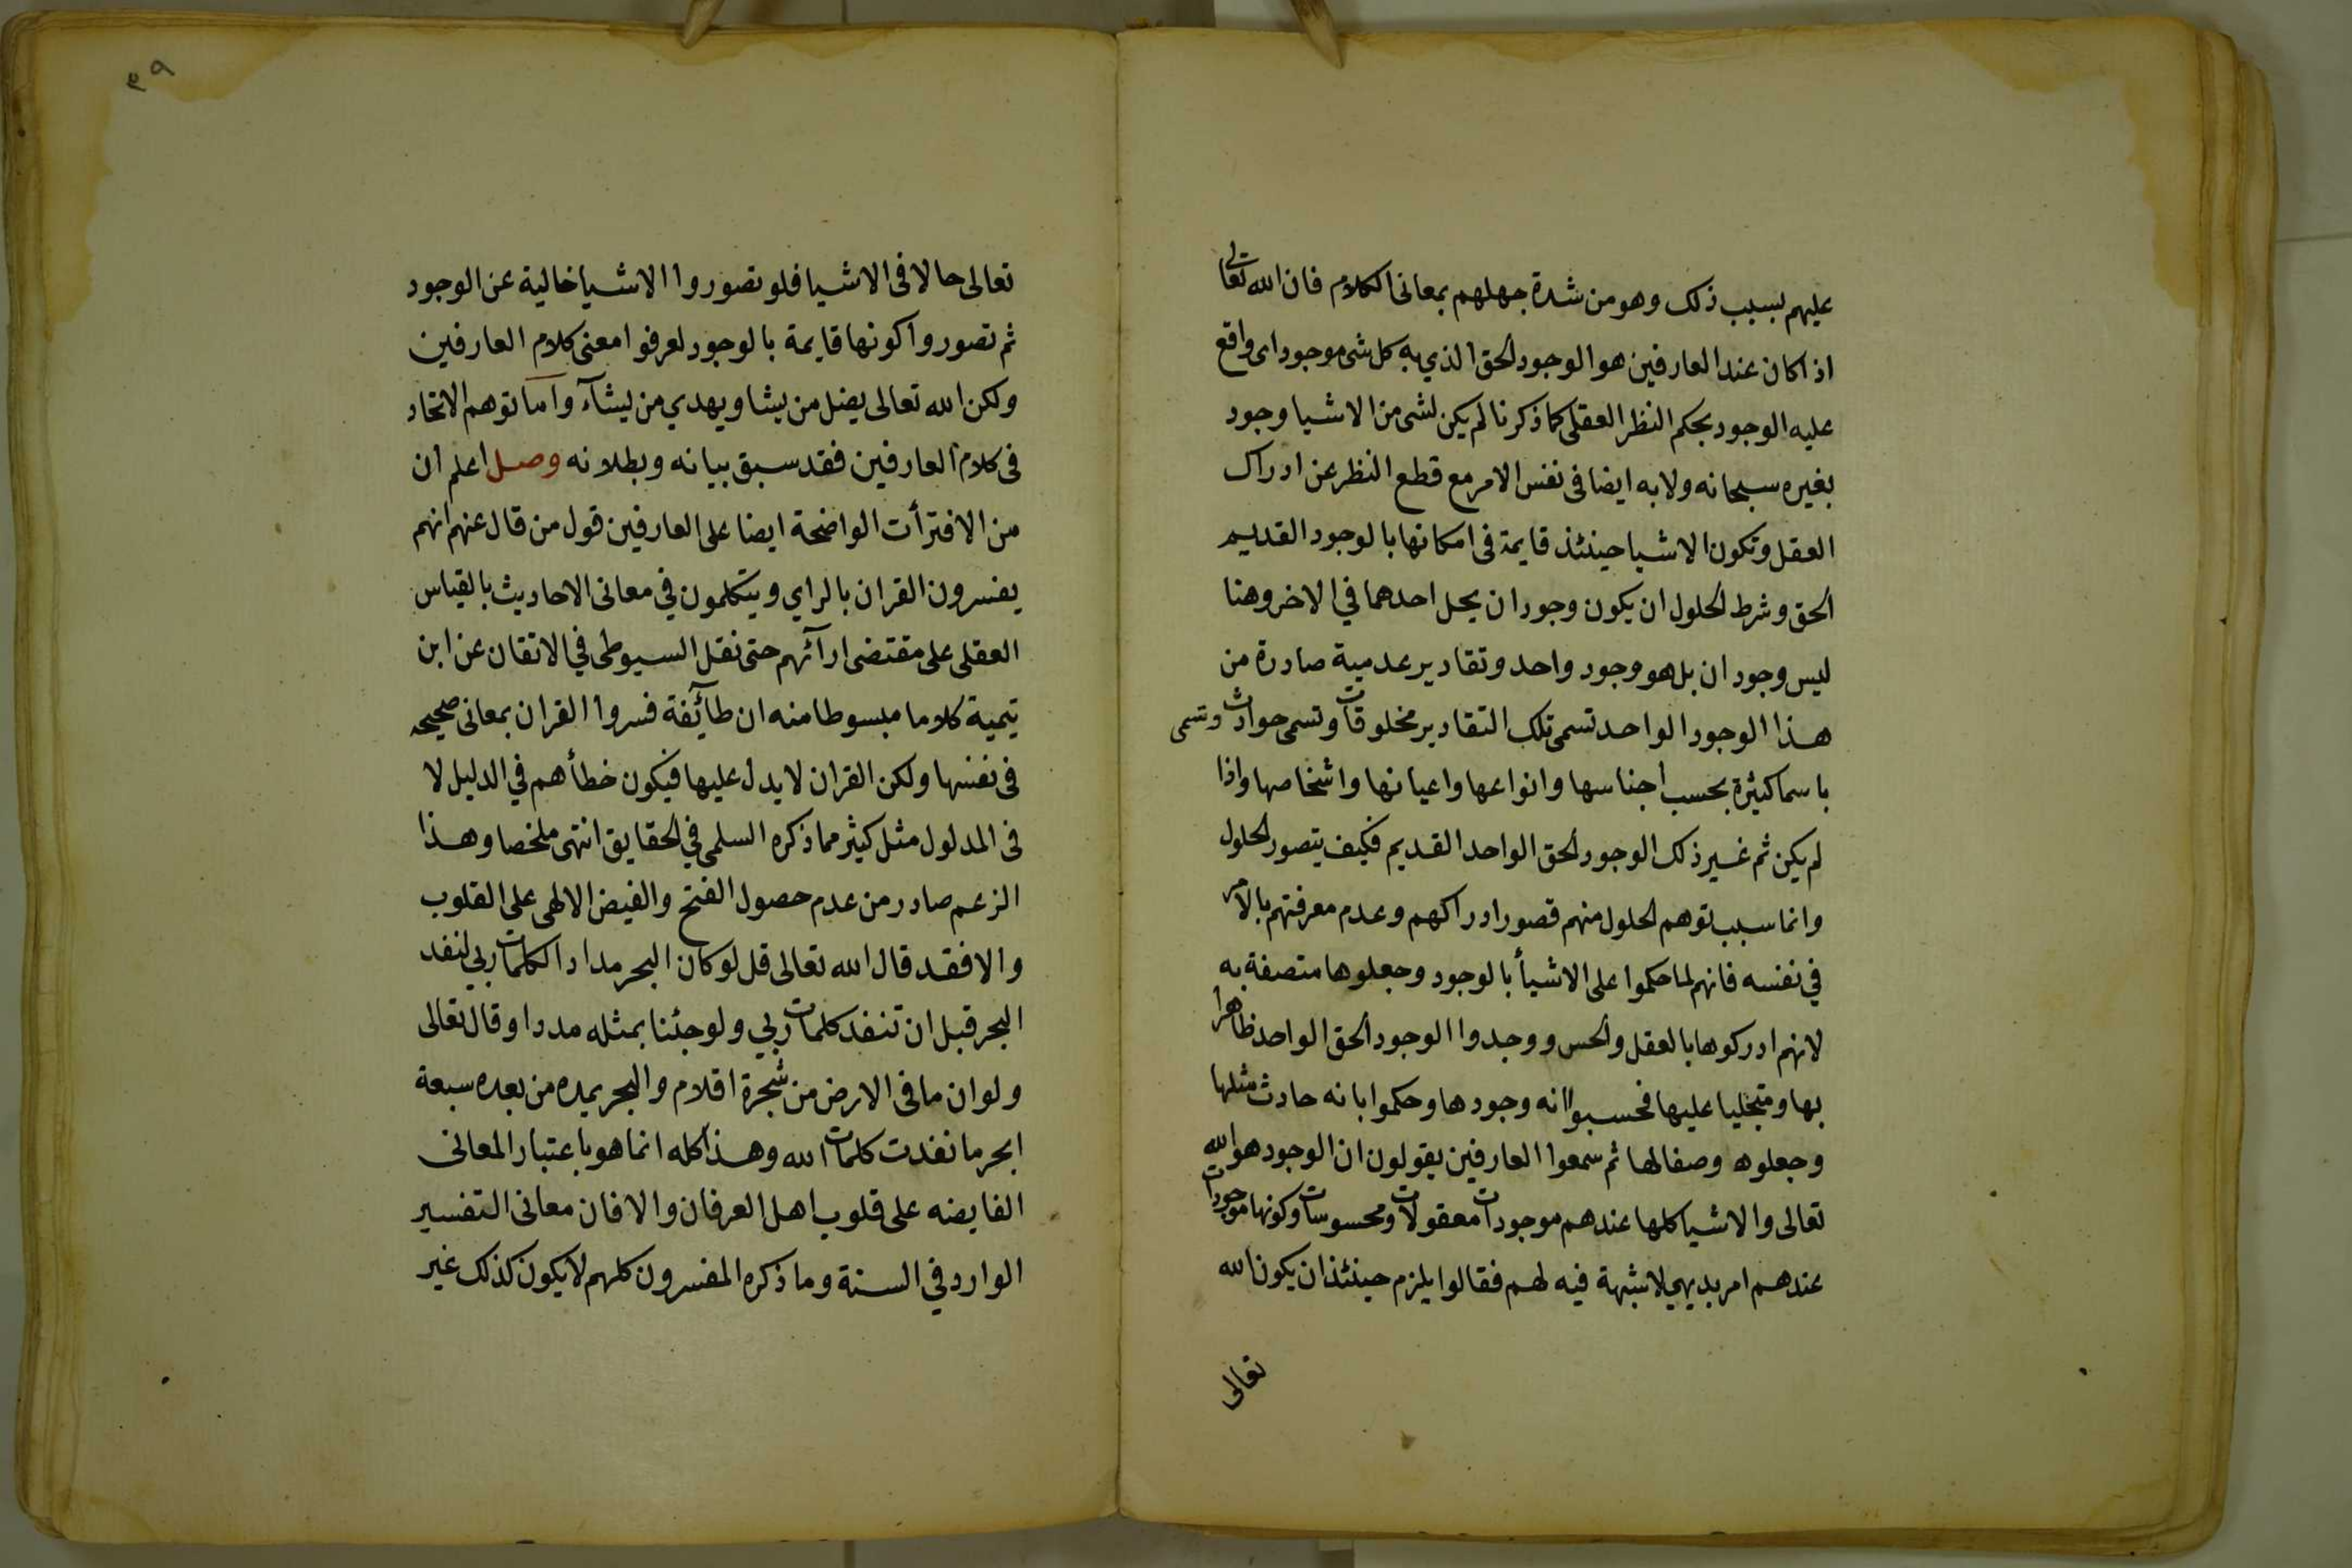 عليهم بسبب ذلك وهو من شدة جهلهم بمعانى الكلام فان الله تعالى
اذا كان عند العارفين هو الوجود الحق الذي به كل شى موجود اى واقع
عليه الوجود بحكم النظر العقلى كما ذكرنا لم يكن لشى من الاشيا وجود
بغيره سبحانه ولا به ايضا فى نفس الامر مع قطع النظر عن ادراك
العقل وتكون الاشيا حينئذ قايمة فى امكانها بالوجود القديم
الحق وشرط الحلول ان يكون وجودان يحل احدهما في الاخر وهنا
ليس وجودان بل هو وجود واحد وتقادير عدمية صادرة من
هذا الوجود الواحد تسمى تلك التقادير مخلوقات وتسمى حوادث وتسمى
باسما كثيرة بحسب اجناسها وانواعها واعيانها واشخاصها واذا
لم يكن ثم غير ذلك الوجود الحق الواحد القديم فكيف يتصور الحلول
وانما سبب توهم الحلول منهم قصور ادراكهم وعدم معرفتهم بالامر
في نفسه فانهم لما حكموا على الاشيأ بالوجود وجعلوها متصفة به
لانهم ادركوها بالعقل والحس ووجدوا الوجود الحق الواحد ظاهرا
بها ومتجليا عليها فحسبوا انه وجودها وحكموا بانه حادث مثلها
وجعلوه وصفا لها ثم سمعوا العارفين يقولون ان الوجود هو الله
تعالى والاشيا كلها عندهم موجودات معقولات ومحسوسات وكونها موجودات
عندهم امر بديهي لا شبهة فيه لهم فقالوا يلزم حينئذ ان يكون الله
تعالى
٣٩
تعالى حالا فى الاشيا فلو تصوروا الاشيا خالية عن الوجود
ثم تصوروا كونها قايمة بالوجود لعرفوا معنى كلام العارفين
ولكن الله تعالى يضل من يشا ويهدي من يشآء وأما توهم الاتحاد
فى كلام العارفين فقد سبق بيانه وبطلانه وصل اعلم ان
من الافترأت الواضحة ايضا على العارفين قول من قال عنهم انهم
يفسرون القران بالراي ويتكلمون في معانى الاحاديث بالقياس
العقلى على مقتضى ارآئهم حتى نقل السيوطى في الاتقان عن ابن
تيمية كلاما مبسوطا منه ان طآئفة فسروا القران بمعانى صحيحه
فى نفسها ولكن القران لا يدل عليها فيكون خطأهم في الدليل لا
فى المدلول مثل كثير مما ذكره السلمى في الحقايق انتهى ملخصا وهذا
الزعم صادر من عدم حصول الفتح والفيض الالهى على القلوب
والا فقد قال الله تعالى قل لو كان البحر مدادا لكلمات ربي لنفد
البحر قبل ان تنفد كلمات ربي ولو جئنا بمثله مددا وقال تعالى
ولو ان ما فى الارض من شجرة اقلام والبحر يمده من بعده سبعة
ابحر ما نفدت كلمات الله وهذا كله انما هو باعتبار المعانى
الفايضه على قلوب اهل العرفان والا فان معانى التفسير
الوارد في السنة وما ذكره المفسرون كلهم لا يكون كذلك غير